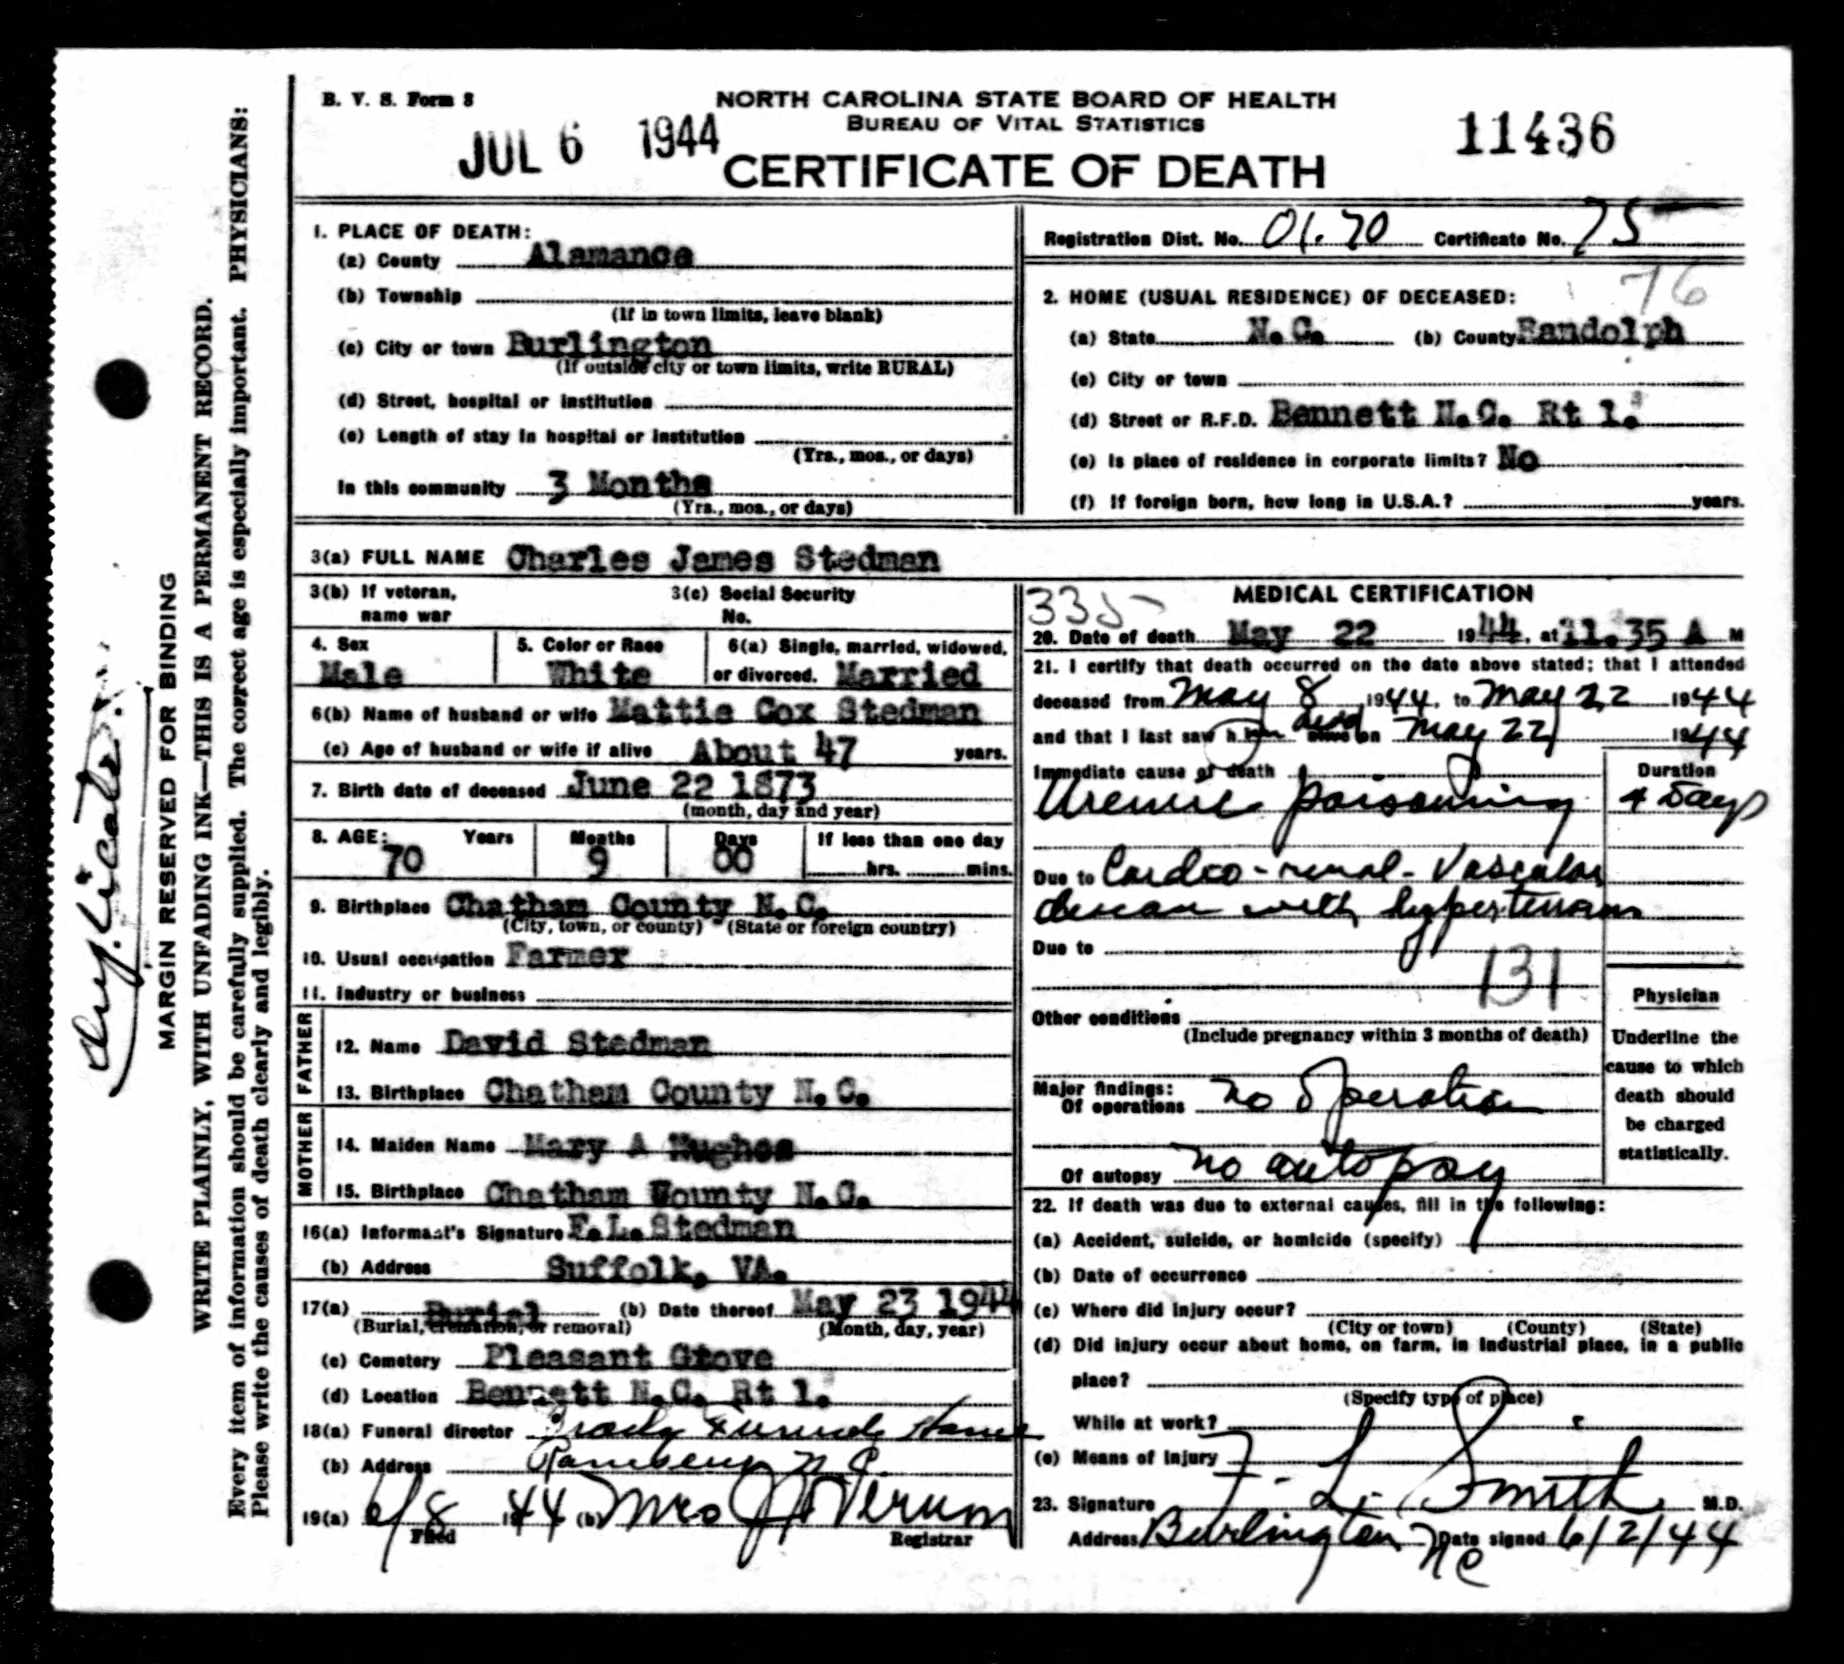 B. V. S. Form 8
NORTH CAROLINA STATE BOARD OF HEALTH
BUREAU OF VITAL STATISTICS
JUL 6 1944
11436
CERTIFICATE OF DEATH
MARGIN RESERVED FOR BINDING
WRITE PLAINLY, WITH UNFADING INK—THIS IS A PERMANENT RECORD.
Every item of information should be carefully supplied. The correct age is especially important. PHYSICIANS:
Please write the causes of death clearly and legibly.
1. PLACE OF DEATH:
(a) County Alamance
(b) Township
(If in town limits, leave blank)
(c) City or town Burlington
(If outside city or town limits, write RURAL)
(d) Street, hospital or institution
(e) Length of stay in hospital or institution
(Yrs., mos., or days)
In this community 3 Months
(Yrs., mos., or days)
Registration Dist. No. 01.70 Certificate No. 75
76
2. HOME (USUAL RESIDENCE) OF DECEASED:
(a) State N.C. (b) County Randolph
(c) City or town
(d) Street or R.F.D. Bennett N.C. Rt 1.
(e) Is place of residence in corporate limits? No
(f) If foreign born, how long in U.S.A.? years.
3(a) FULL NAME Charles James Stedman
3(b) If veteran, name war
3(c) Social Security No.
4. Sex Male
5. Color or Race White
6(a) Single, married, widowed, or divorced. Married
6(b) Name of husband or wife Mattie Cox Stedman
(c) Age of husband or wife if alive About 47 years.
7. Birth date of deceased June 22 1873
(month, day and year)
8. AGE: Years Months Days If less than one day
70 9 00 hrs. mins.
9. Birthplace Chatham County N.C.
(City, town, or county) (State or foreign country)
10. Usual occupation Farmer
11. Industry or business
FATHER
12. Name David Stedman
13. Birthplace Chatham County N.C.
MOTHER
14. Maiden Name Mary A Hughes
15. Birthplace Chatham County N.C.
16(a) Informant's Signature F.L. Stedman
(b) Address Suffolk, VA.
17(a) Burial (b) Date thereof May 23 1944
(Burial, cremation, or removal) (Month, day, year)
(c) Cemetery Pleasant Grove
(d) Location Bennett N.C. Rt 1.
18(a) Funeral director Brady Funeral Home
(b) Address Ramseur N.C.
19(a) 6/8 1944 (b) Mrs J Vernon
Filed Registrar
335
MEDICAL CERTIFICATION
20. Date of death May 22 1944, at 11.35 A M
21. I certify that death occurred on the date above stated; that I attended
deceased from May 8 1944, to May 22 1944
and that I last saw him dead alive on May 22 1944
Immediate cause of death Duration
Uremic poisoning 4 Days
Due to Cardio-renal-Vascular
disease with hypertension
Due to
131
Other conditions
(Include pregnancy within 3 months of death)
Major findings:
Of operations no operation
Of autopsy no autopsy
Physician
Underline the
cause to which
death should
be charged
statistically.
22. If death was due to external causes, fill in the following:
(a) Accident, suicide, or homicide (specify)
(b) Date of occurrence
(c) Where did injury occur?
(City or town) (County) (State)
(d) Did injury occur about home, on farm, in industrial place, in a public
place?
(Specify type of place)
While at work?
(e) Means of Injury
23. Signature F. L. Smith M.D.
Address Burlington NC Date signed 6/2/44